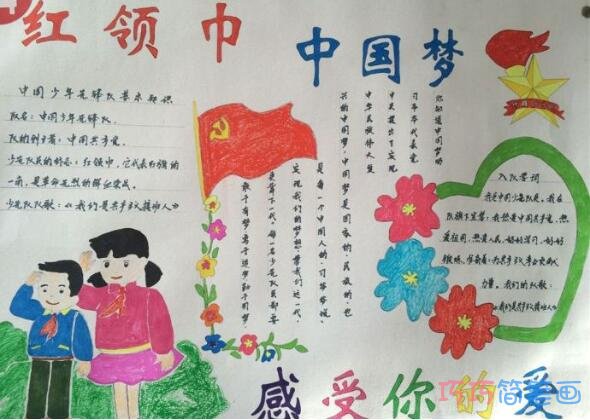 红领巾
中国梦
中国少年先锋队基本知识
队名：中国少年先锋队
队的创立者：中国共产党
少先队员的标志：红领巾，它代表红旗的
一角，是革命先烈的鲜血染成。
少先队队歌：《我们是共产主义接班人》
你知道中国梦吗
习爷爷代表党
中央提出了实现
中华民族伟大复
兴的中国梦，中国梦是国家的、民族的，也
是每一个中国人的。习爷爷说，
实现我们的梦想，靠我们这一代，
更靠下一代。每一名少先队员都要
敢于有梦，勇于追梦，勤于圆梦。
入队誓词
我是中国少先队员，我在
队旗下宣誓：我热爱中国共产党，热
爱祖国，热爱人民，好好学习，好好
锻炼，准备着：为共产主义事业贡献
力量。我们的队歌：
《我们是共产主义接班人》
向
感受你的爱
巧巧简笔画